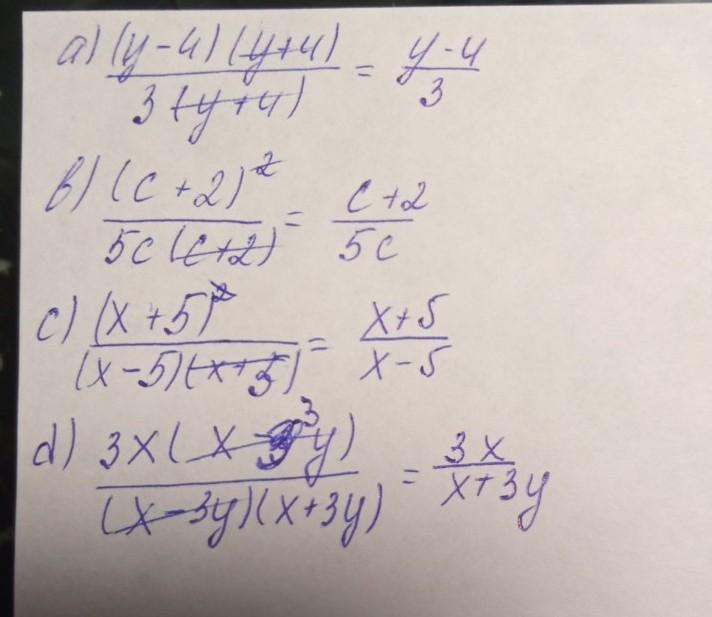 a) (y-4)(y+4) / 3(y+4) = y-4 / 3
b) (c+2)² / 5c(c+2) = c+2 / 5c
c) (x+5)² / (x-5)(x+5) = x+5 / x-5
d) 3x(x-3y) / (x-3y)(x+3y) = 3x / x+3y